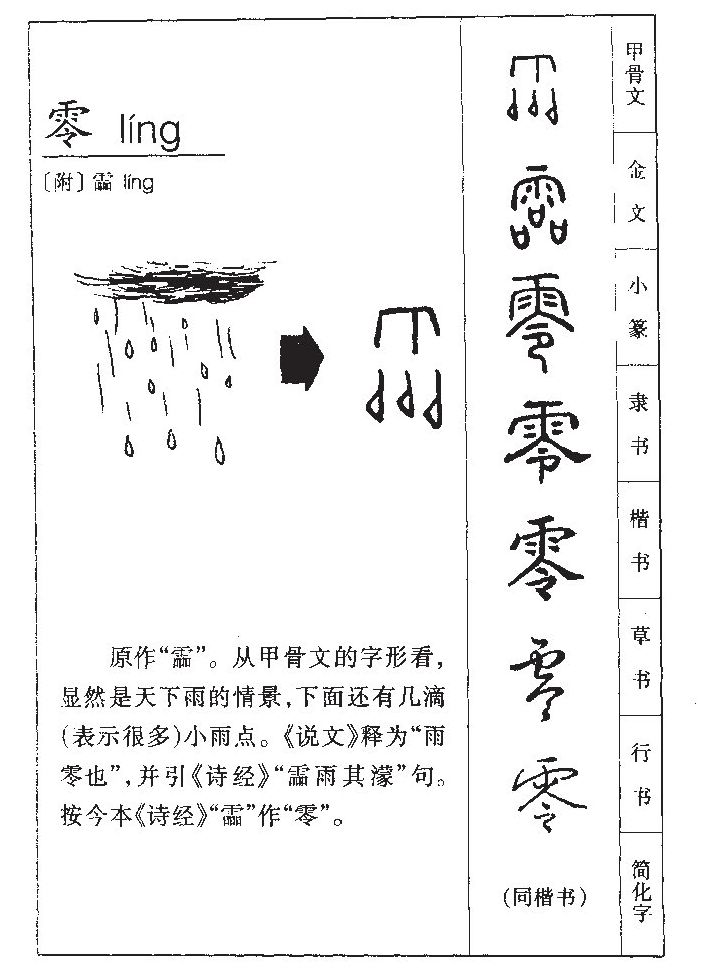 零 líng
〔附〕霝 líng
原作“霝”。从甲骨文的字形看，
显然是天下雨的情景，下面还有几滴
(表示很多)小雨点。《说文》释为“雨
零也”，并引《诗经》“霝雨其濛”句。
按今本《诗经》“霝”作“零”。
甲骨文
霝
金文
霝
小篆
零
隶书
零
楷书
零
草书
零
行书
零
简化字
(同楷书)